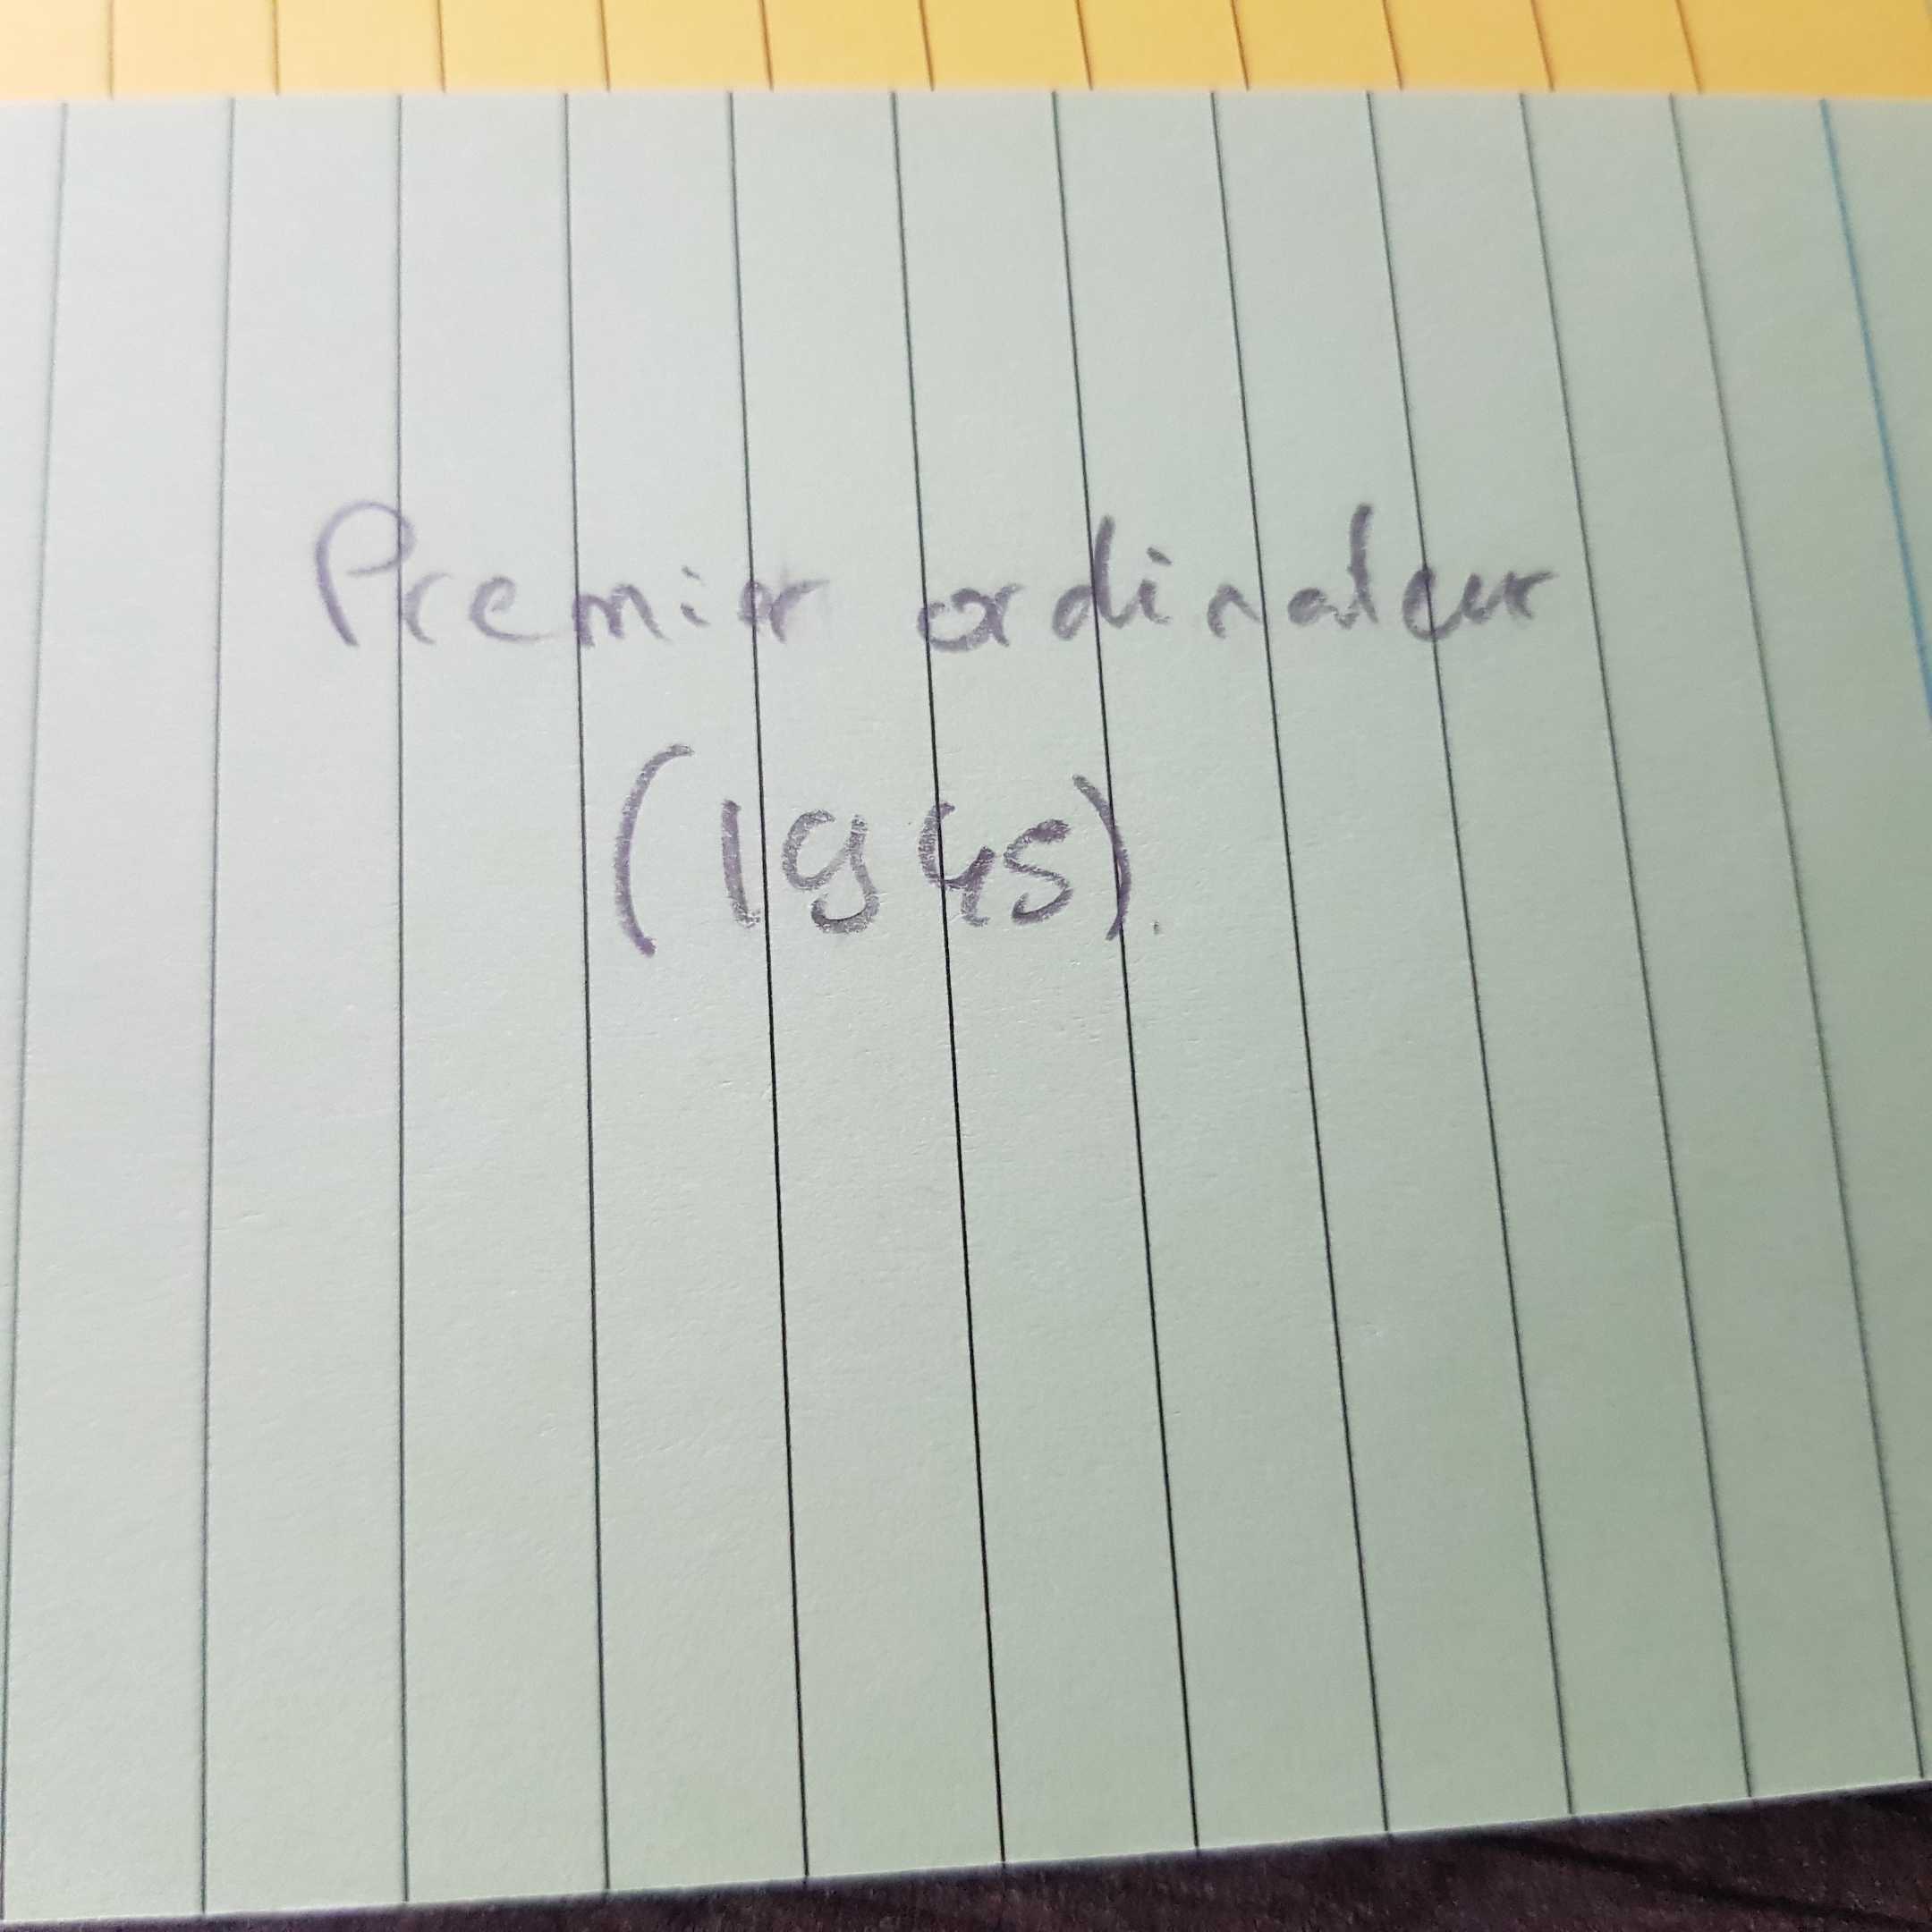 Premier ordinateur
(1945).